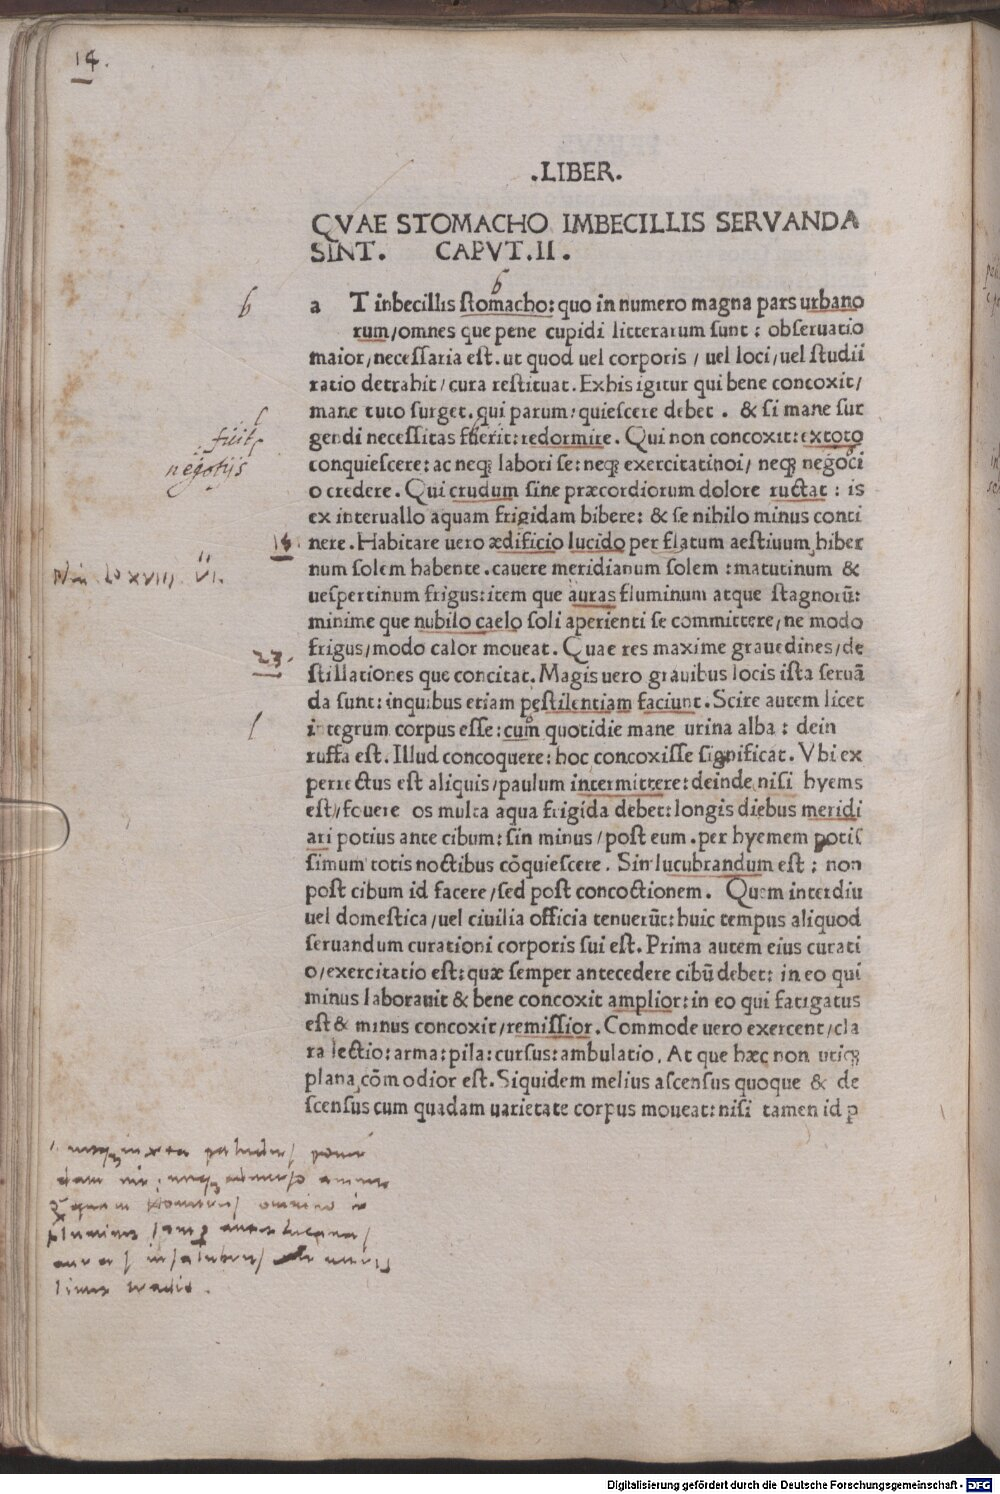 14.
.LIBER.
QVAE STOMACHO IMBECILLIS SERVANDA
SINT. CAPVT.II.
b
b
a T inbecillis stomacho: quo in numero magna pars urbano
rum/omnes que pene cupidi litterarum sunt: obseruatio
maior/necessaria est. ut quod uel corporis / uel loci/uel studii
ratio detrahit/cura restituat. Exhis igitur qui bene concoxit/
mane tuto surget. qui parum: quiescere debet. & si mane sur
gendi necessitas fuerit: redormire. Qui non concoxit: extoto
fuit
negotijs
conquiescere: ac neqȝ labori se: neqȝ exercitatinoi/ neqȝ negoci
o credere. Qui crudum sine præcordiorum dolore ructat: is
ex interuallo aquam frigidam bibere: & se nihilo minus conti
18.
nere. Habitare uero ædificio lucido per flatum aestiuum hiber
num solem habente. cauere meridianum solem: matutinum &
uespertinum frigus: item que auras fluminum atque stagnorū:
minime que nubilo caelo soli aperienti se committere/ne modo
frigus/modo calor moueat. Quae res maxime grauedines/de
23.
stillationes que concitat. Magis uero grauibus locis ista seruā
da sunt: inquibus etiam pestilentiam faciunt. Scire autem licet
integrum corpus esse: cum quotidie mane urina alba: dein
ruffa est. Illud concoquere: hoc concoxisse significat. Vbi ex
perrectus est aliquis/paulum intermittere: deinde nisi hyems
est/fouere os multa aqua frigida debet: longis diebus meridi
ari potius ante cibum: sin minus/post eum. per hyemem potis
simum totis noctibus cōquiescere. Sin lucubrandum est: non
post cibum id facere/sed post concoctionem. Quem interdiu
uel domestica/uel ciuilia officia tenuerūt: huic tempus aliquod
seruandum curationi corporis sui est. Prima autem eius curati
o/exercitatio est: quæ semper antecedere cibū debet: in eo qui
minus laborauit & bene concoxit amplior: in eo qui fatigatus
est & minus concoxit/remissior. Commode uero exercent/cla
ra lectio: arma: pila: cursus: ambulatio. At que hæc non utiqȝ
plana cōmodior est. Siquidem melius ascensus quoque & de
scensus cum quadam uarietate corpus moueat: nisi tamen id p
Digitalisierung gefördert durch die Deutsche Forschungsgemeinschaft - DFG